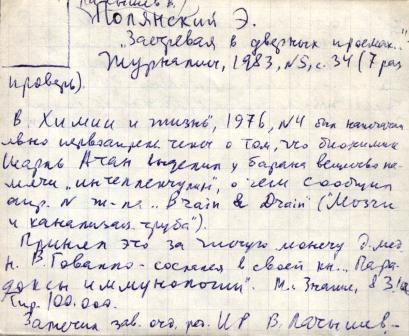 Полянский Э.
"Застревая в дверных проемах.."
Журналист, 1983, №5, с. 34 (7 раз
проверь).
В "Химии и жизнь", 1976, №4 был напечатан
явно первоапрельский текст о том, что биохимик
Шарль Атан выделил у барана вещество па-
мяти "интеллектулин", о чем сообщил
апр. № ж-ла "Brain & Drain" ("Мозги
и канализац. труба").
Принял это за чистую монету д. мед.
н. В. Говалло - сослался в своей кн. "Пара-
доксы иммунологии". М.: Знание, 83 г.
Тир. 100.000.
Заметил зав. отд. ИР В. Латышев.